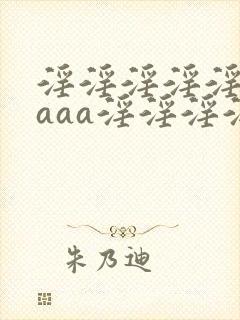 淫淫淫淫淫
aaa淫淫淫
朱乃迪